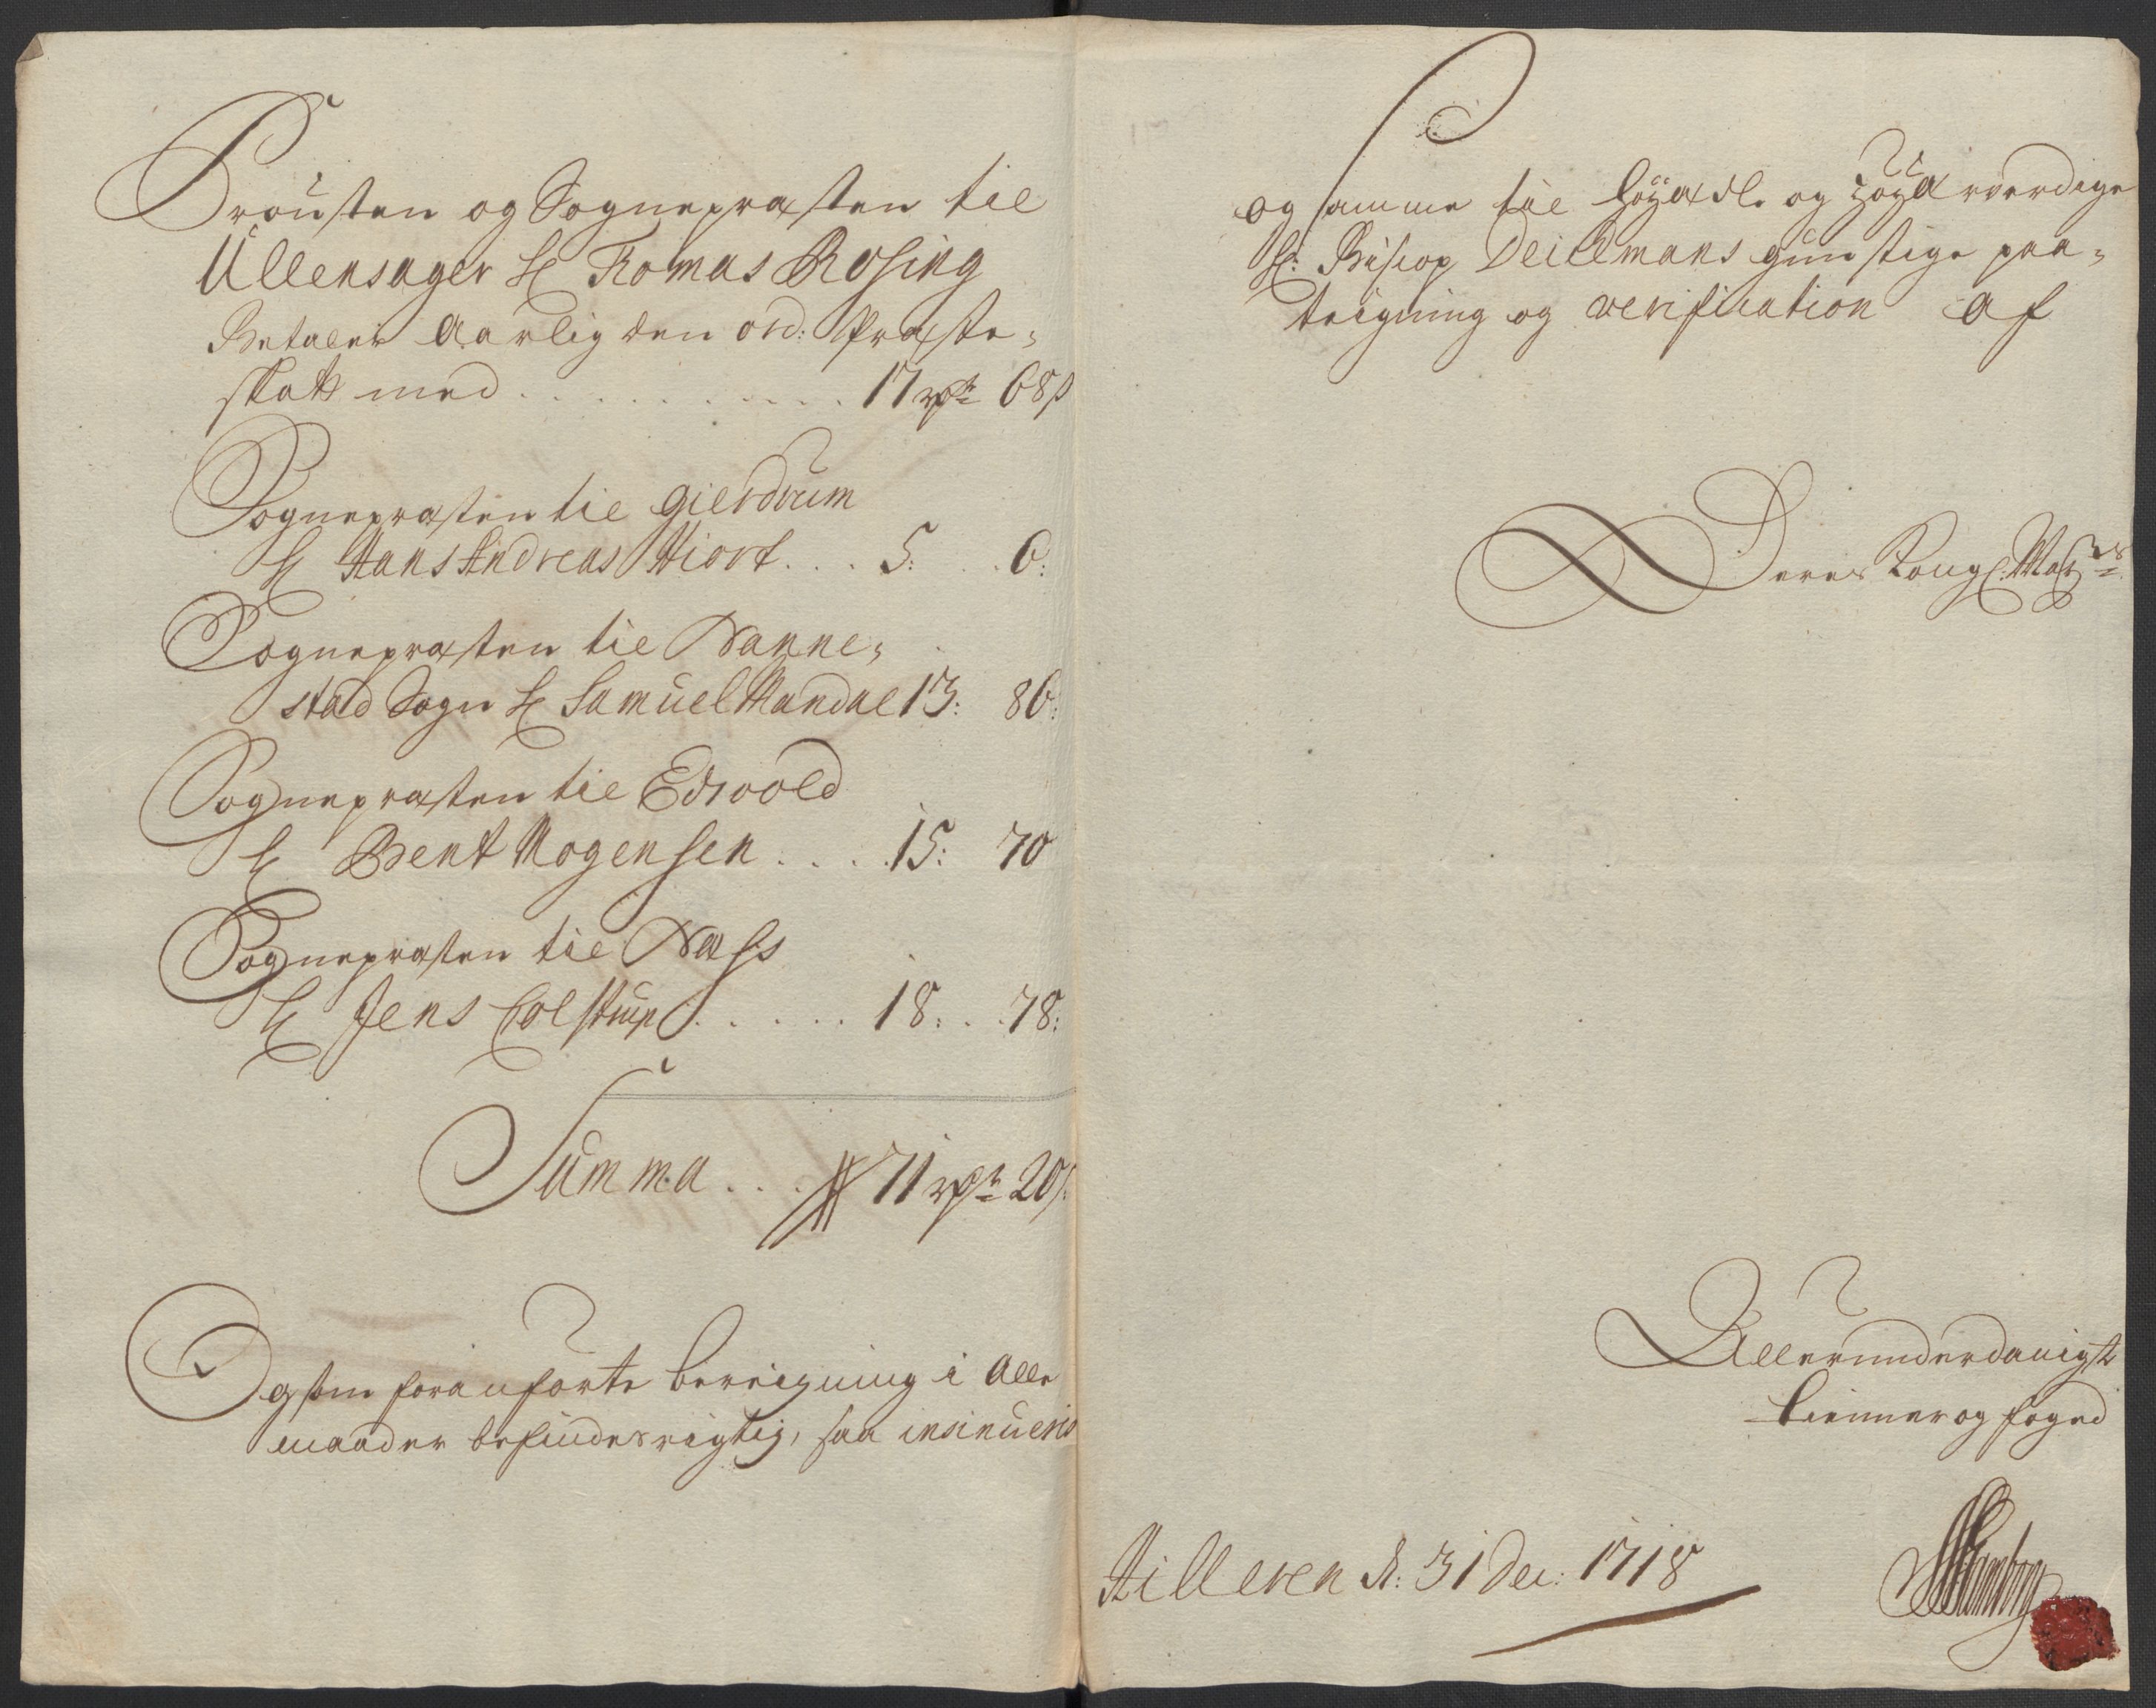 Prousten og Sognepræsten til
Ullensager Hr Tomas Rosing
Betaler Aarlig den ord: Præste-
skatt med . . . . . . . . . . 17 rdr 68 s
Sognepræsten til Gierdrum
Hr Hans Andreas Hiort . . . 5: . . 6:
Sognepræsten til Nanne-
stad Sogn Hr Samuel Mandal 13: 86:
Sognepræsten til Edsvold
Hr Bent Mogensen . . . . 15: 70
Sognepræsten til Næss
Hr Jens Colstrup . . . . . 18: . . 78:
Summa . . . 71 rdr 20 s:
Og som foranførte beregning i Alle
maader befindes rigtig, saa insinueris
og samme til høyædle og høyærværdige
Hr: Biscop Deichmans gunstige paa-
teigning og verification af
Deres Kongl: Mayts
Allerunderdanigste
tienner og foged
Hilleren d: 31 Dec: 1718